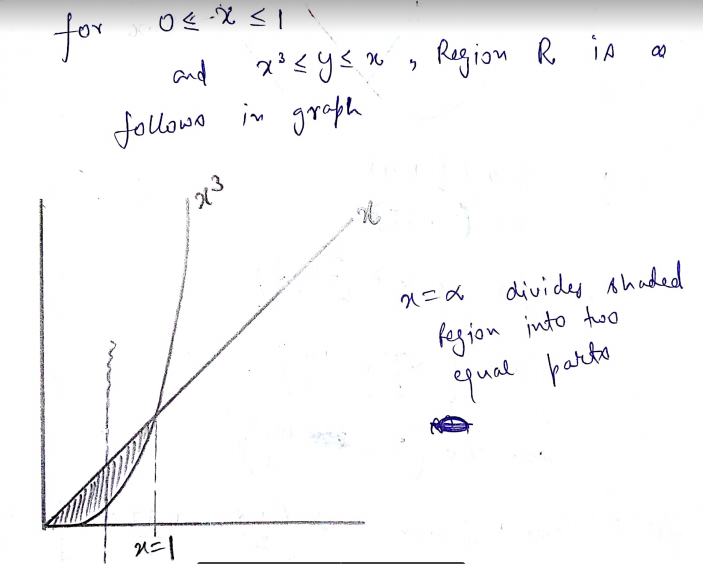 for 0 ≤ x ≤ 1
and x³ ≤ y ≤ x , Region R is as
follows in graph
x³
x
x = α divides shaded
Region into two
equal parts
x=1